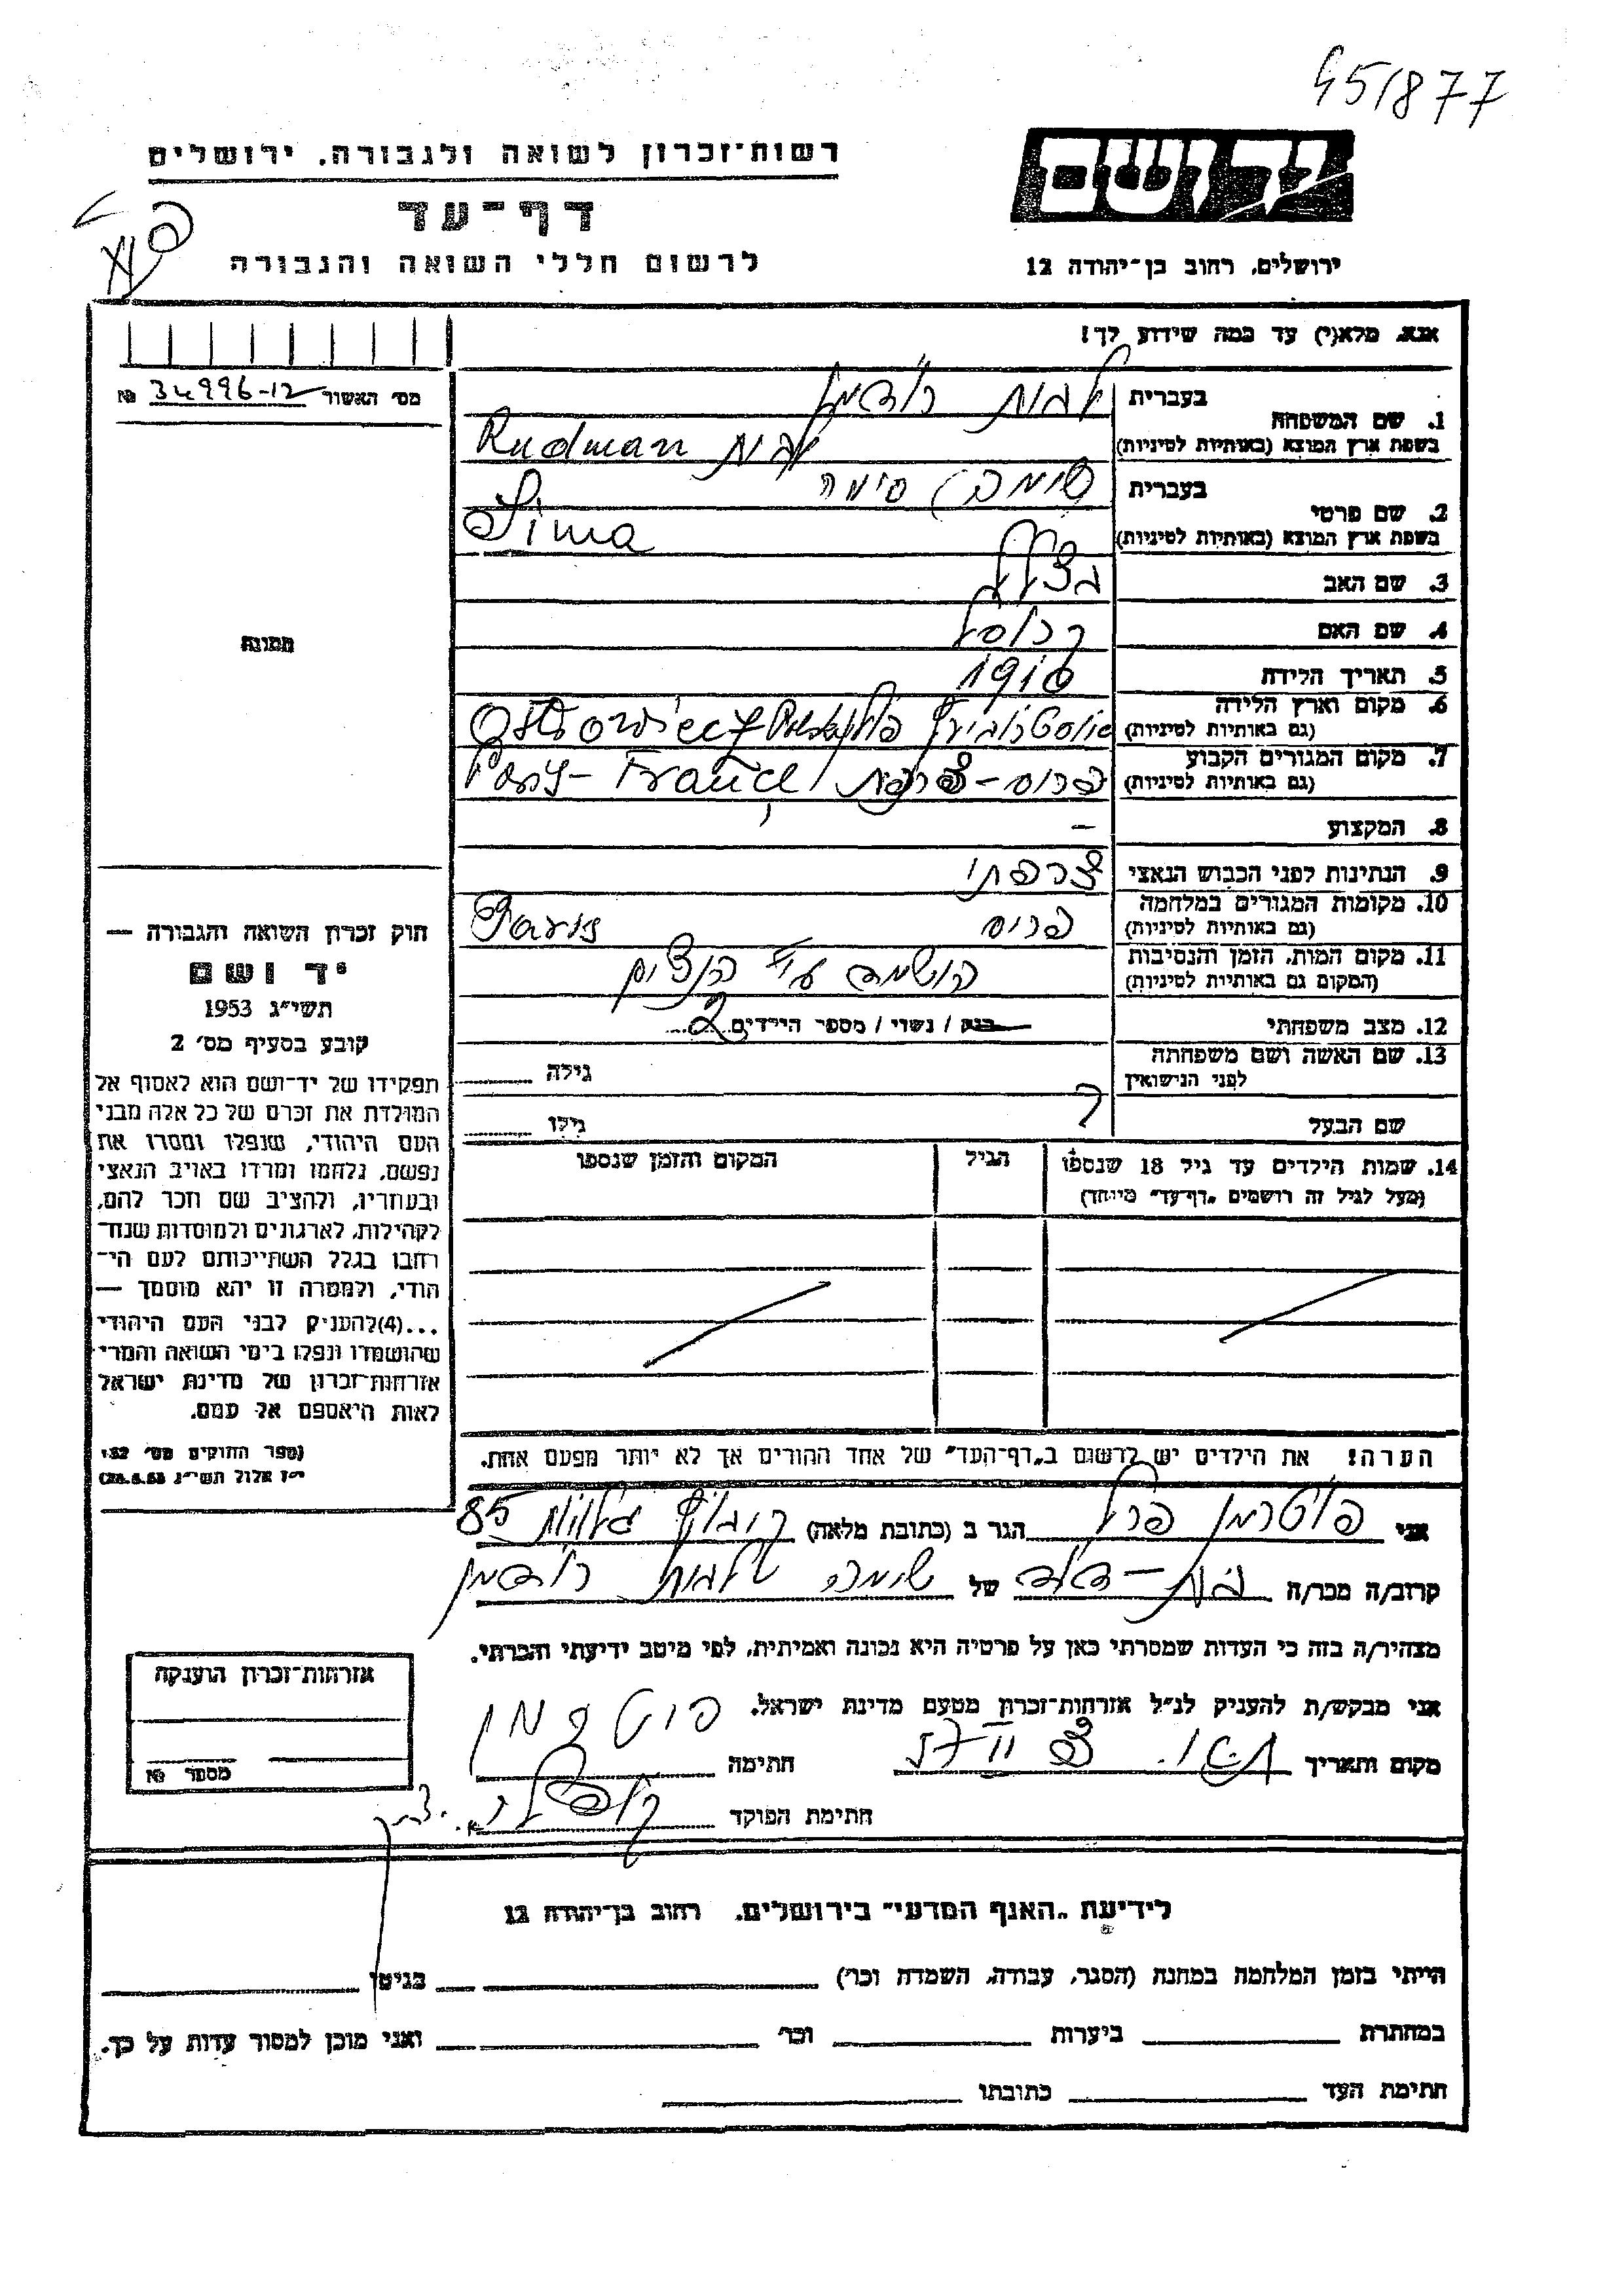 45/877
רשות-זכרון לשואה ולגבורה, ירושלים
יד ושם
דף-עד
לרשום חללי השואה והגבורה
ירושלים, רחוב בן-יהודה 12
אנא, מלא(י) עד כמה שידוע לך!
מס׳ האשור 34996-12 №
1. שם המשפחה
בעברית לבית רודמן
בשפת ארץ המוצא (באותיות לטיניות) Rudman
2. שם פרטי
בעברית סימה
בשפת ארץ המוצא (באותיות לטיניות) Sima
3. שם האב בצלאל
4. שם האם
5. תאריך הלידה 1916
6. מקום וארץ הלידה
(גם באותיות לטיניות)
7. מקום המגורים הקבוע פריס-צרפת
(גם באותיות לטיניות)
8. המקצוע -
9. הנתינות לפני הכבוש הנאצי צרפתי
10. מקומות המגורים במלחמה פריס Paris
(גם באותיות לטיניות)
11. מקום המות, הזמן והנסיבות הושמדה ע״י הנצים
(המקום גם באותיות לטיניות)
12. מצב משפחתי רווק / נשוי / מספר הילדים 2
13. שם האשה ושם משפחתה
לפני הנישואין גילה
שם הבעל ? גילו
14. שמות הילדים עד גיל 18 שנספו הגיל המקום והזמן שנספו
(מעל לגיל זה רושמים „דף-עד״ מיוחד)
הערה! את הילדים יש לרשום ב„דף-העד״ של אחד ההורים אך לא יותר מפעם אחת.
תמונה
חוק זכרון השואה והגבורה —
יד ושם
תשי״ג 1953
קובע בסעיף מס׳ 2
תפקידו של יד-ושם הוא לאסוף אל
המולדת את זכרם של כל אלה מבני
העם היהודי, שנפלו ומסרו את
נפשם, נלחמו ומרדו באויב הנאצי
ובעוזריו, ולהציב שם וזכר להם,
לקהילות, לארגונים ולמוסדות שנח-
רבו בגלל השתייכותם לעם הי-
הודי, ולמטרה זו יהא מוסמך —
...(4)להעניק לבני העם היהודי
שהושמדו ונפלו בימי השואה והמרי
אזרחות-זכרון של מדינת ישראל
לאות היאספם אל עמם.
(ספר החוקים מס׳ 132
י״ז אלול תשי״ג 28.8.53)
אני פויטרמן פרל הגר ב (כתובת מלאה) 85
קרוב/ה מכר/ה בת-דוד של שימה לבית רודמן
מצהיר/ה בזה כי העדות שמסרתי כאן על פרטיה היא נכונה ואמיתית, לפי מיטב ידיעתי והכרתי.
אני מבקש/ת להעניק לנ״ל אזרחות-זכרון מטעם מדינת ישראל.
מקום ותאריך חתימה
חתימת הפוקד
אזרחות-זכרון הוענקה
מספר №
לידיעת „האגף המדעי״ בירושלים, רחוב בן-יהודה 12
הייתי בזמן המלחמה במחנה (הסגר, עבודה, השמדה וכו׳) בגיטו
במחתרת ביערות וכו׳ ואני מוכן למסור עדות על כך.
חתימת העד כתובתו